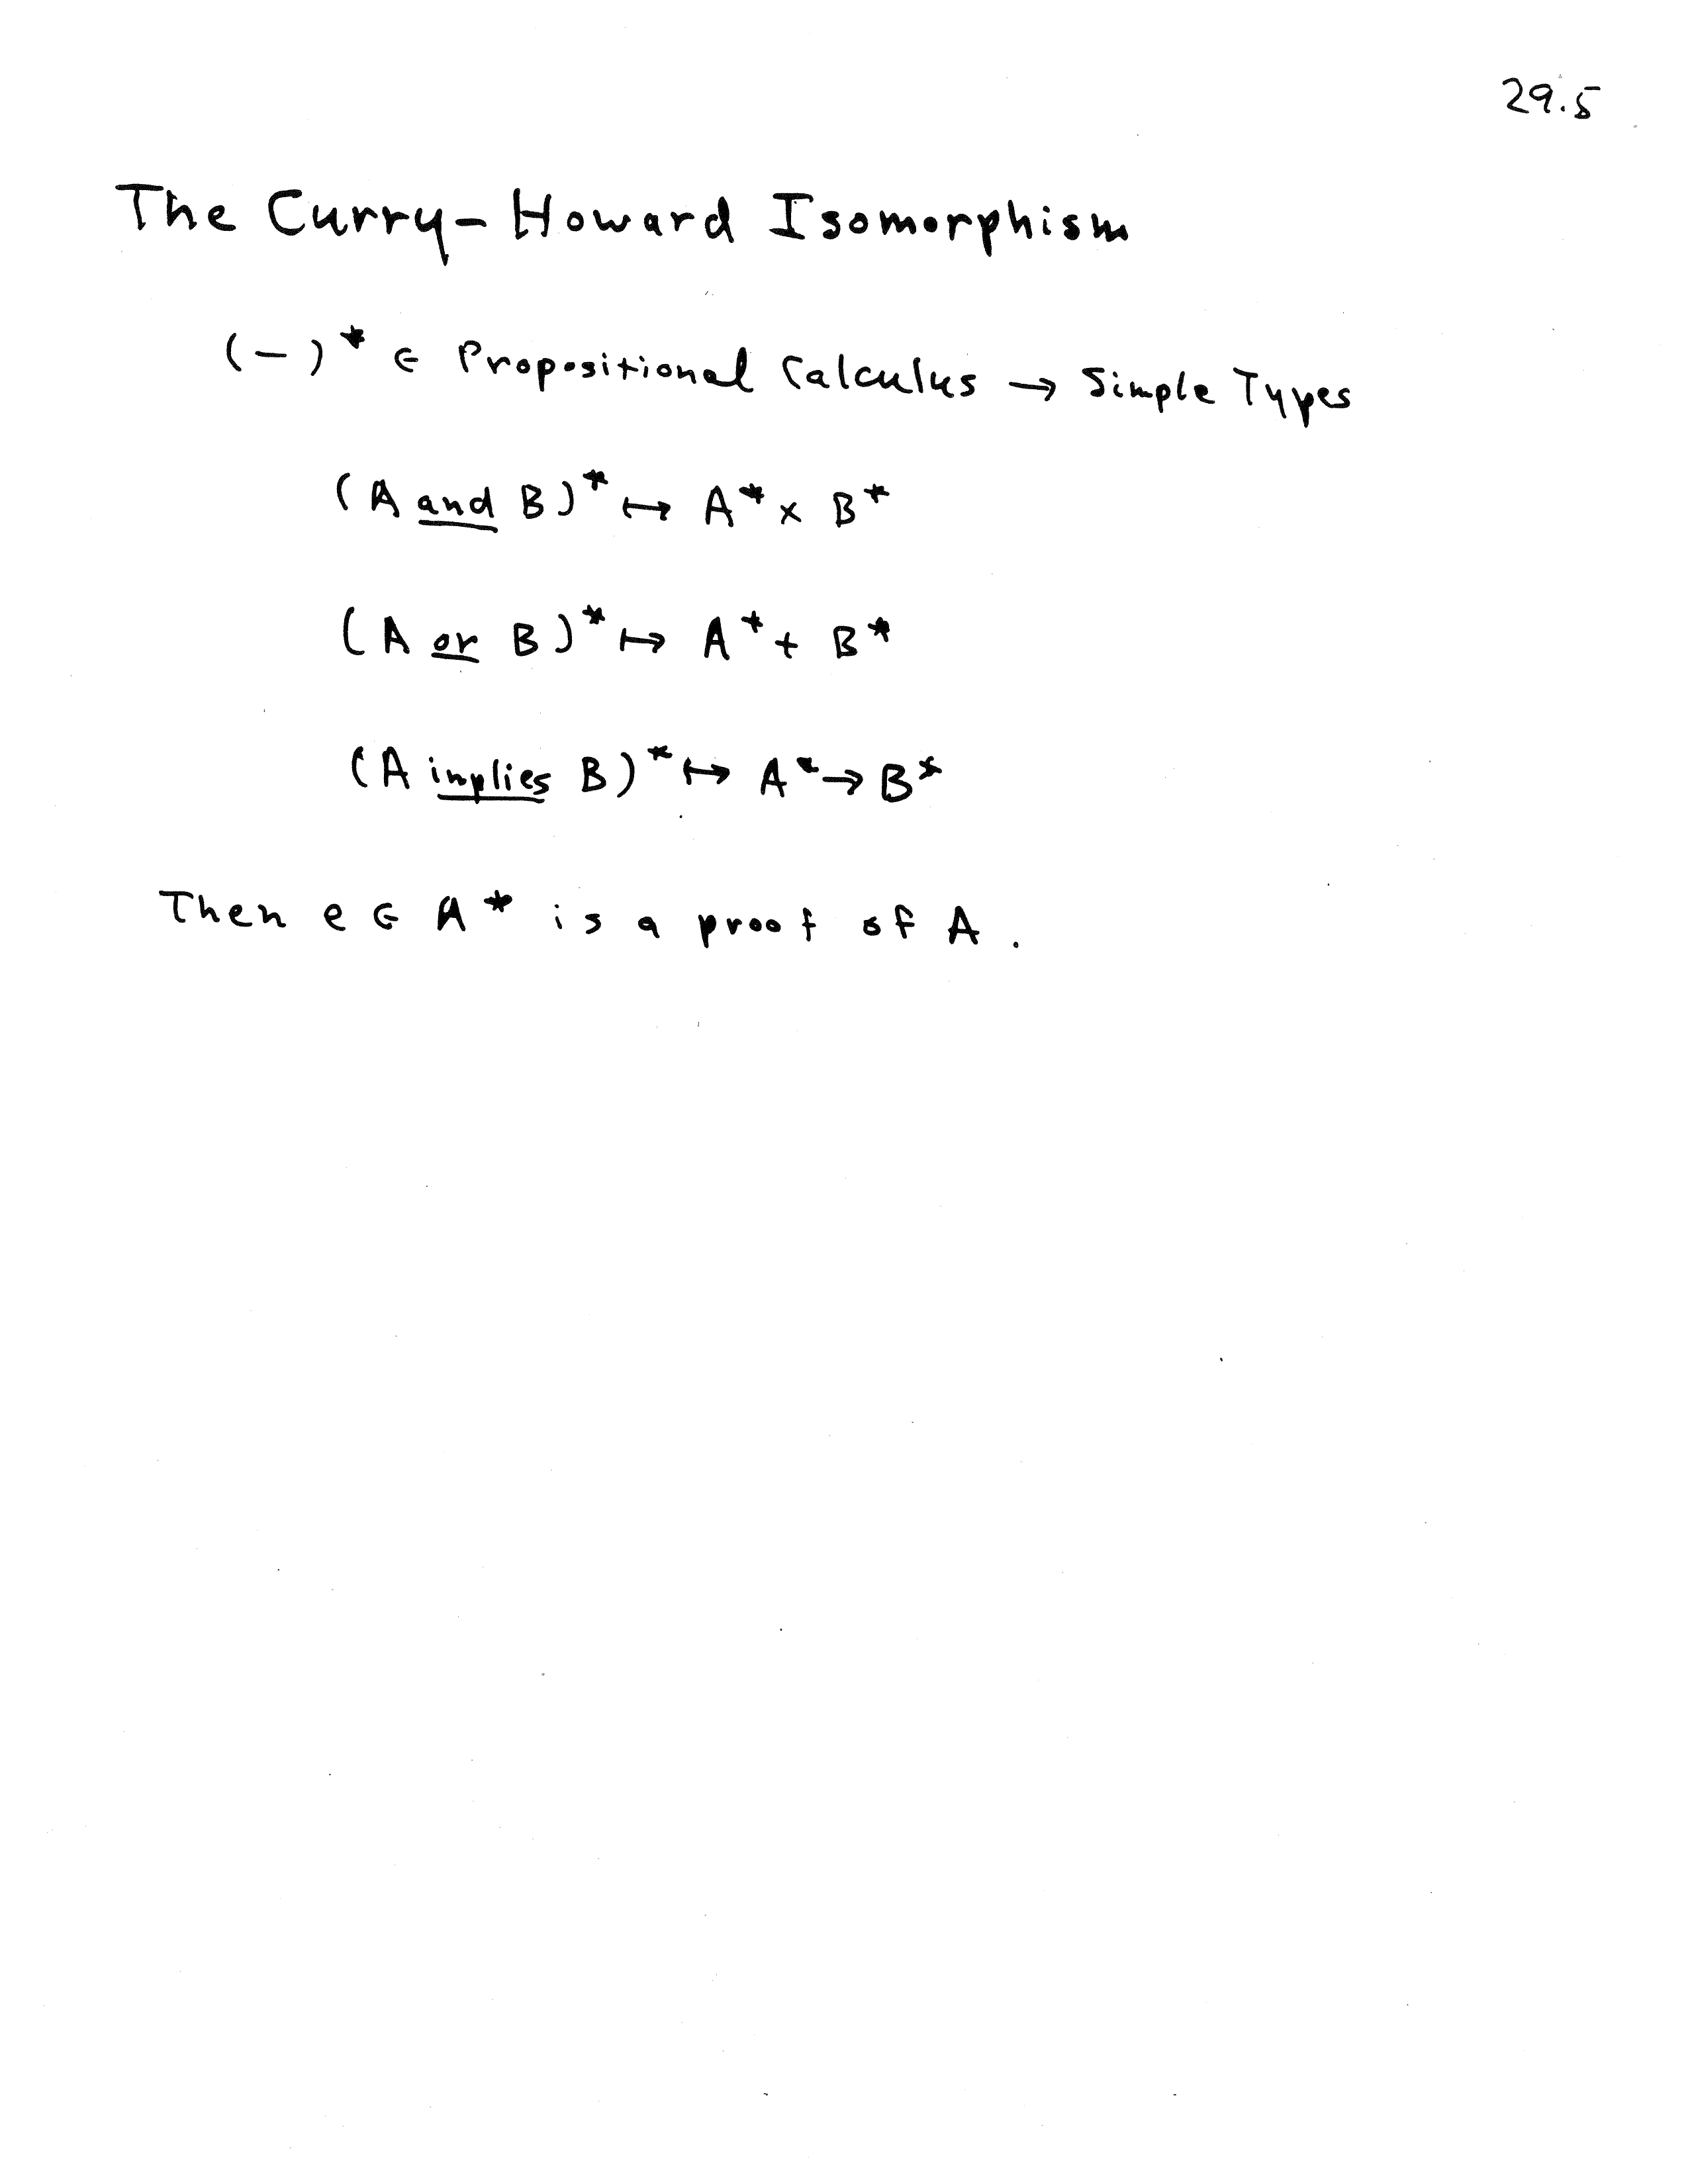 29.5
The Curry-Howard Isomorphism
(-)* ∈ Propositional Calculus → Simple Types
(A and B)* ↦ A* × B*
(A or B)* ↦ A* + B*
(A implies B)* ↦ A* → B*
Then e ∈ A* is a proof of A.